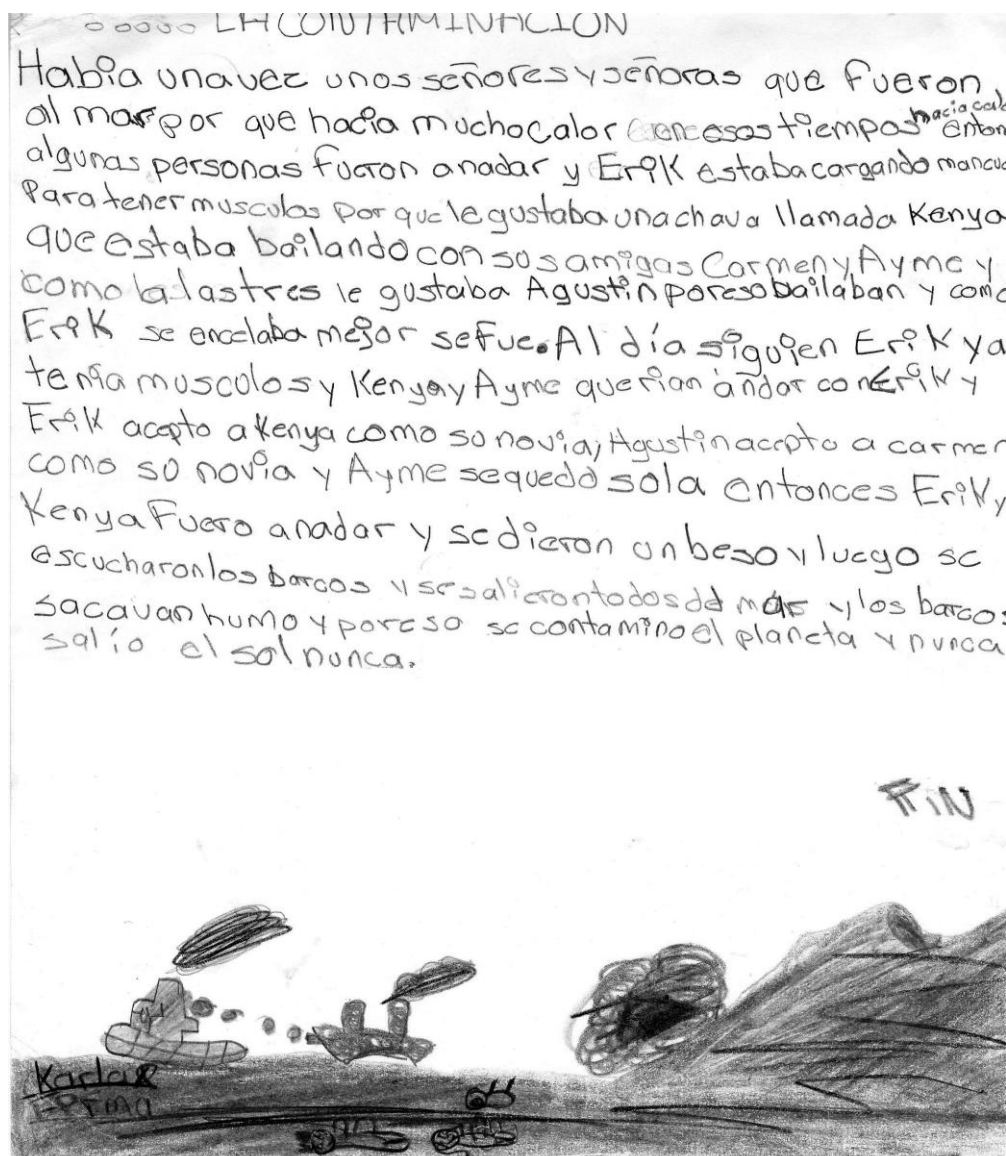 LA CONTAMINACION
Habia unavez unos señores y señoras que fueron
al mar por que hacia mucho calor en esos tiempos hacia calo
algunas personas fueron anadar y Erik estaba cargando mancu
Para tener musculos por que le gustaba una chava llamada Kenya
que estaba bailando con sus amigas Carmen y Ayme y
como a las tres le gustaba Agustin por eso bailaban y como
Erik se encelaba mejor se fue. Al día siguien Erik ya
tenia musculos y Kenya y Ayme querian andar con Erik y
Erik acepto a Kenya como so novia, Agustin acepto a carmen
como so novia y Ayme se quedo sola entonces Erik y
Kenya Fuero anadar y se dieron un beso y luego se
escucharon los barcos y se salieron todos del mar y los barcos
sacavan humo y por eso se contamino el planeta y nunca
salío el sol nunca.
FiN
Karla